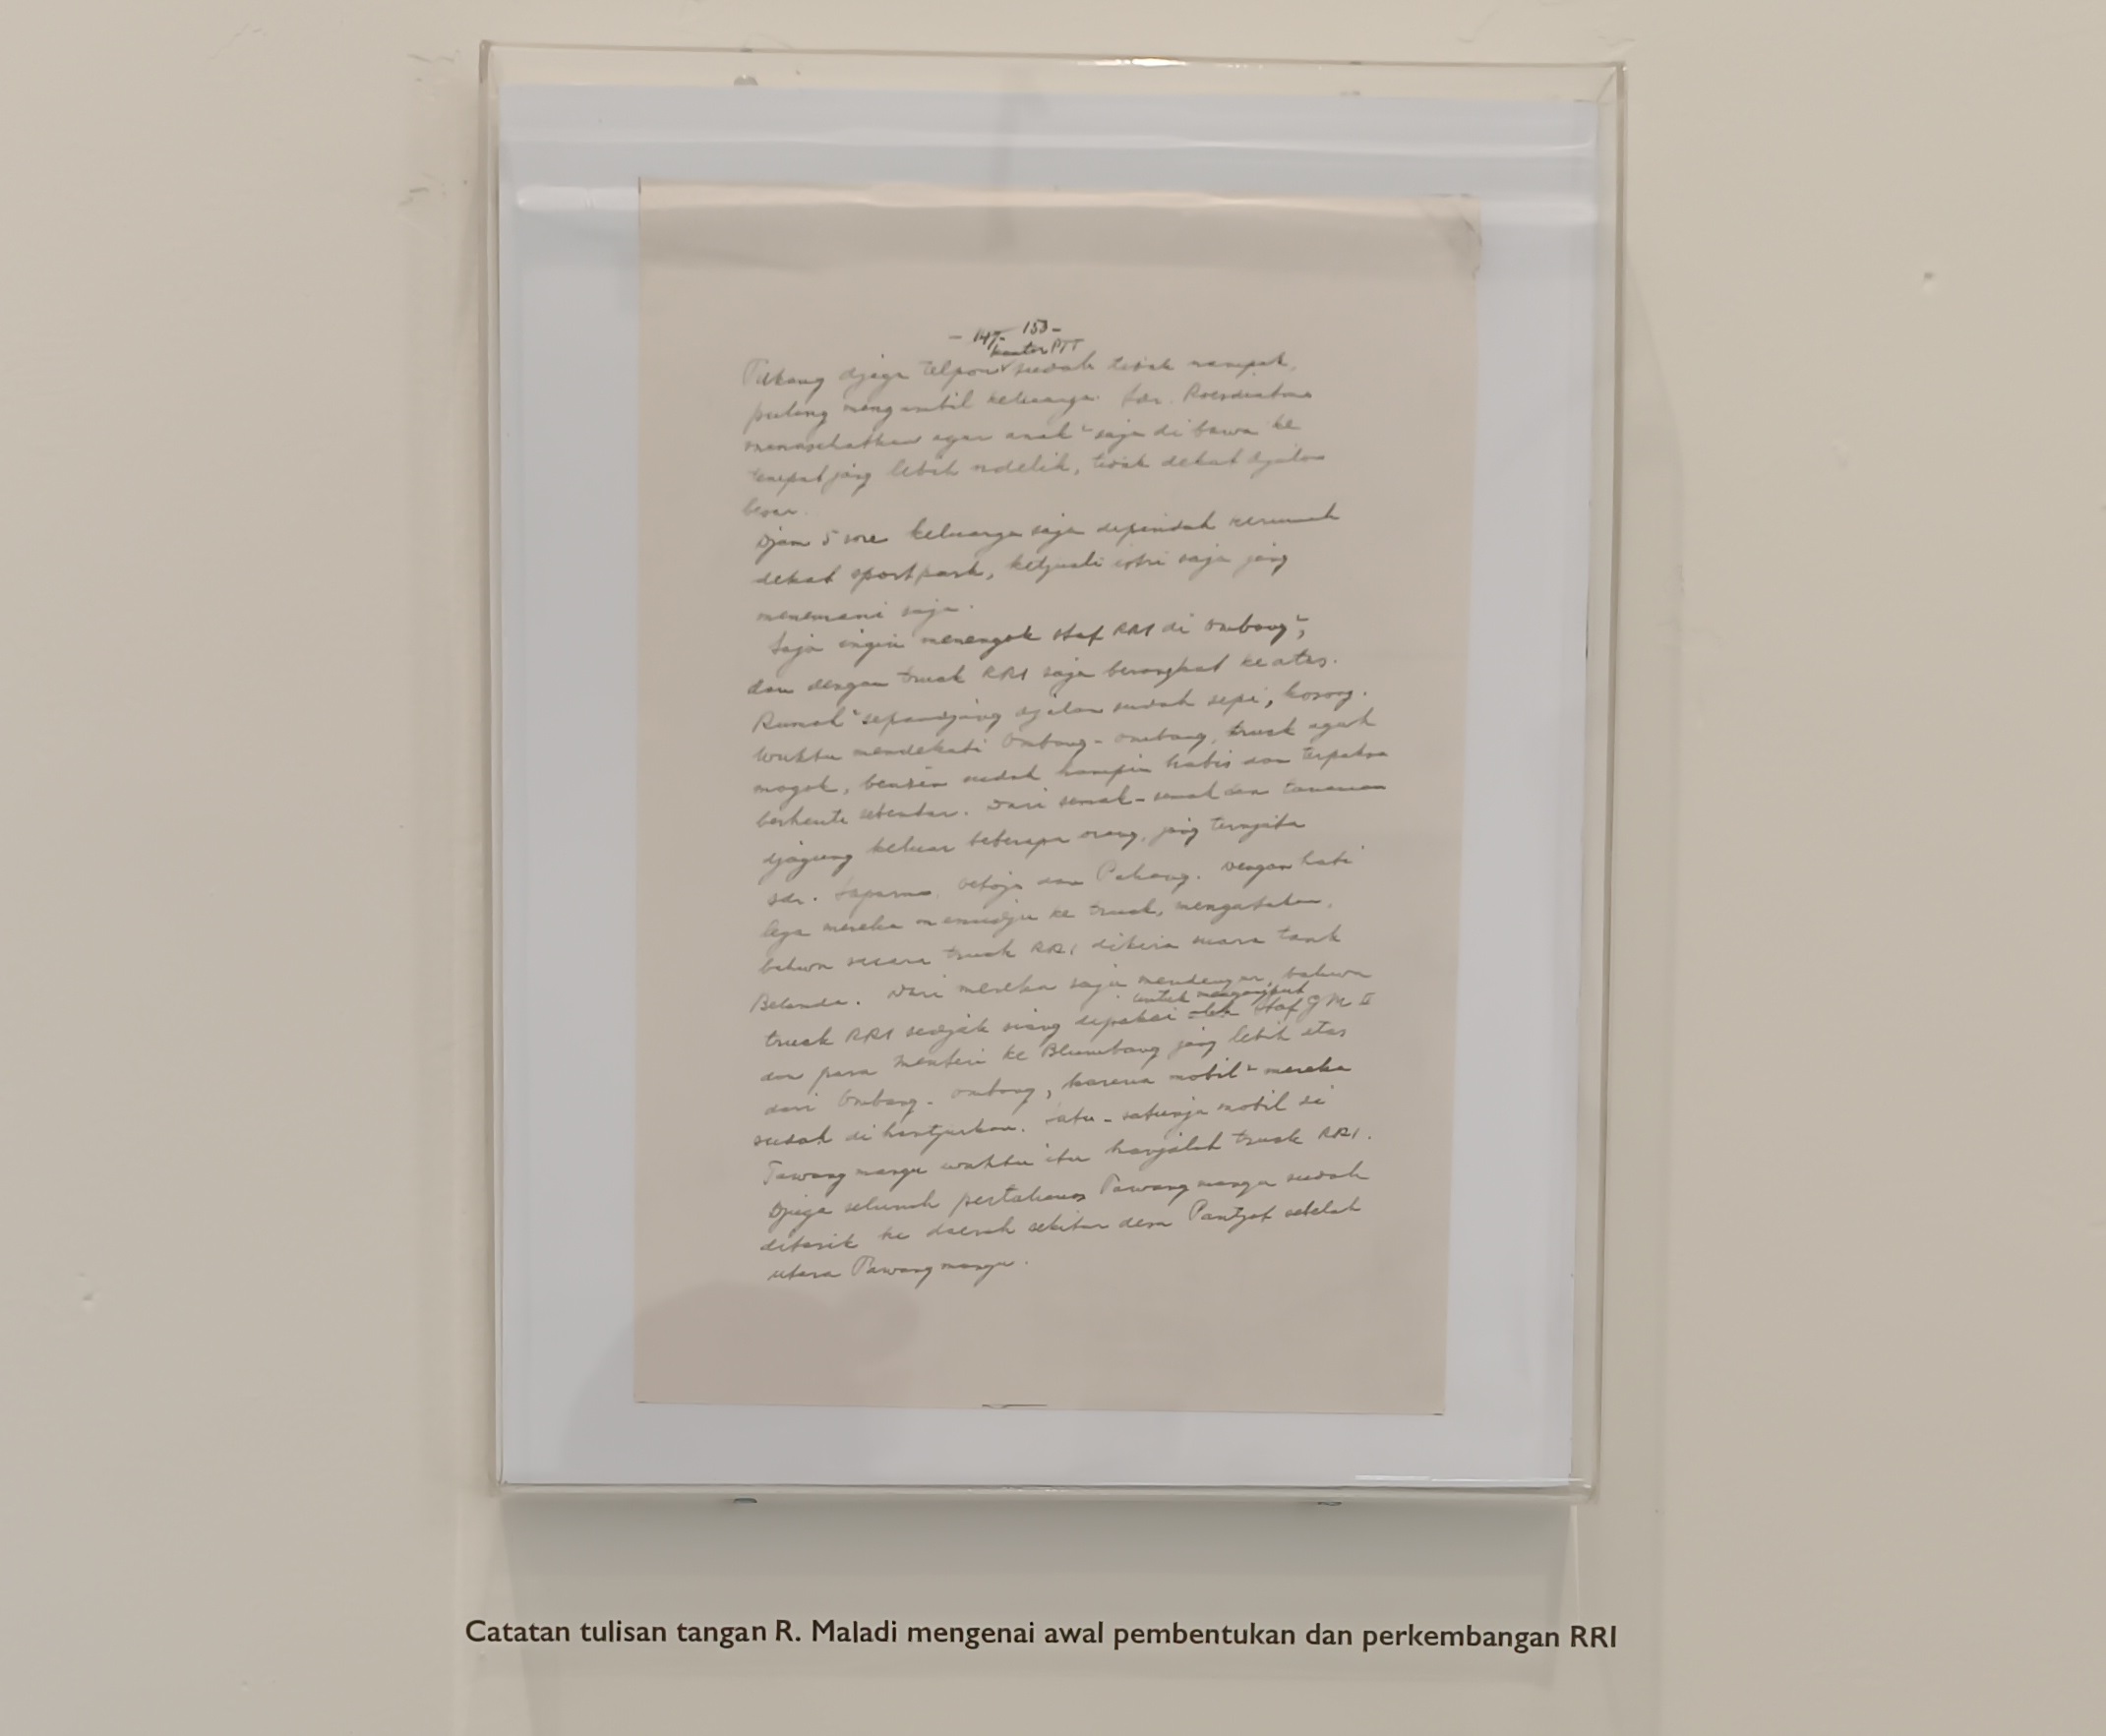 - 147- 153 -
kantor PTT
Tukang djaga telpon sudah tidak nampak,
pulang mengambil keluarga. Sdr. Roesdiatmo
menasehatkan agar anak² saja di bawa ke
tempat jang lebih ndelik, tidak dekat djalan
besar.
Djam 5 sore keluarga saja dipindah kerumah
dekat sportpark, ketjuali istri saja jang
menemani saja.
Saja ingin menengok staf RRI di Ombang²,
dan dengan truck RRI saja berangkat keatas.
Rumah² sepandjang djalan sudah sepi, kosong.
Waktu mendekati Ombang-ombang, truck agak
mogok, bensin sudah hampir habis dan terpaksa
berhenti sebentar. Dari semak-semak dan tanaman
djagung keluar beberapa orang, jang ternjata
sdr. Soparno, dan Pekang. Dengan hati
lega mereka menudju ke truck, mengatakan,
bahwa suara truck RRI dikira suara tank
Belanda. Dari mereka saja mendengar, bahwa
untuk mengangkut
truck RRI sedjak siang dipakai oleh staf GM II
dan para menteri ke Blumbang jang lebih atas
dari Ombang-ombang, karena mobil² mereka
sudah di hantjurkan. Satu-satunja mobil di
Tawangmangu waktu itu hanjalah truck RRI.
Djuga seluruh pertahanan Tawangmangu sudah
ditarik ke daerah sekitar desa Pantjot sebelah
utara Tawangmangu.
Catatan tulisan tangan R. Maladi mengenai awal pembentukan dan perkembangan RRI